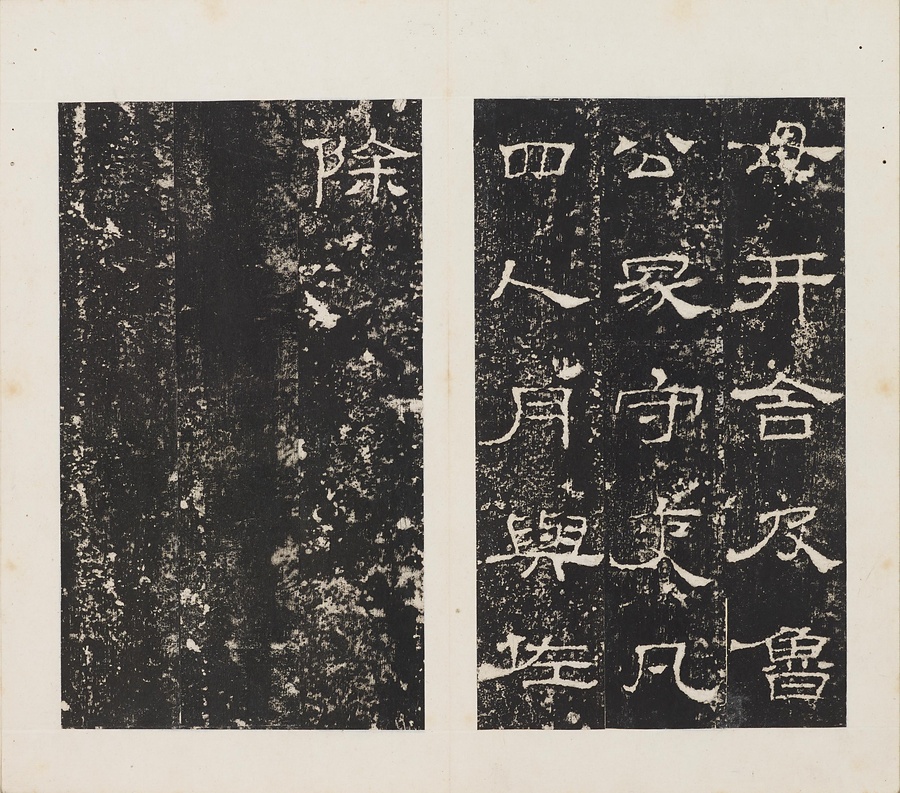 母井舍及魯
公冢守吏凡
四人月與佐
除